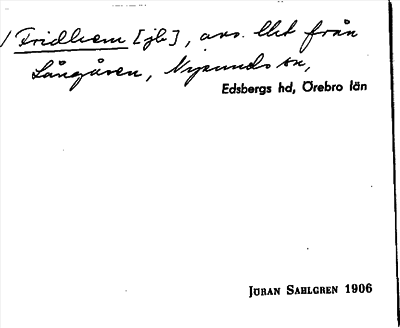 Fridhem [jb], avs. 1let från
Långåsen, Nysunds sn,
Edsbergs hd, Örebro län
JÖRAN SAHLGREN 1906